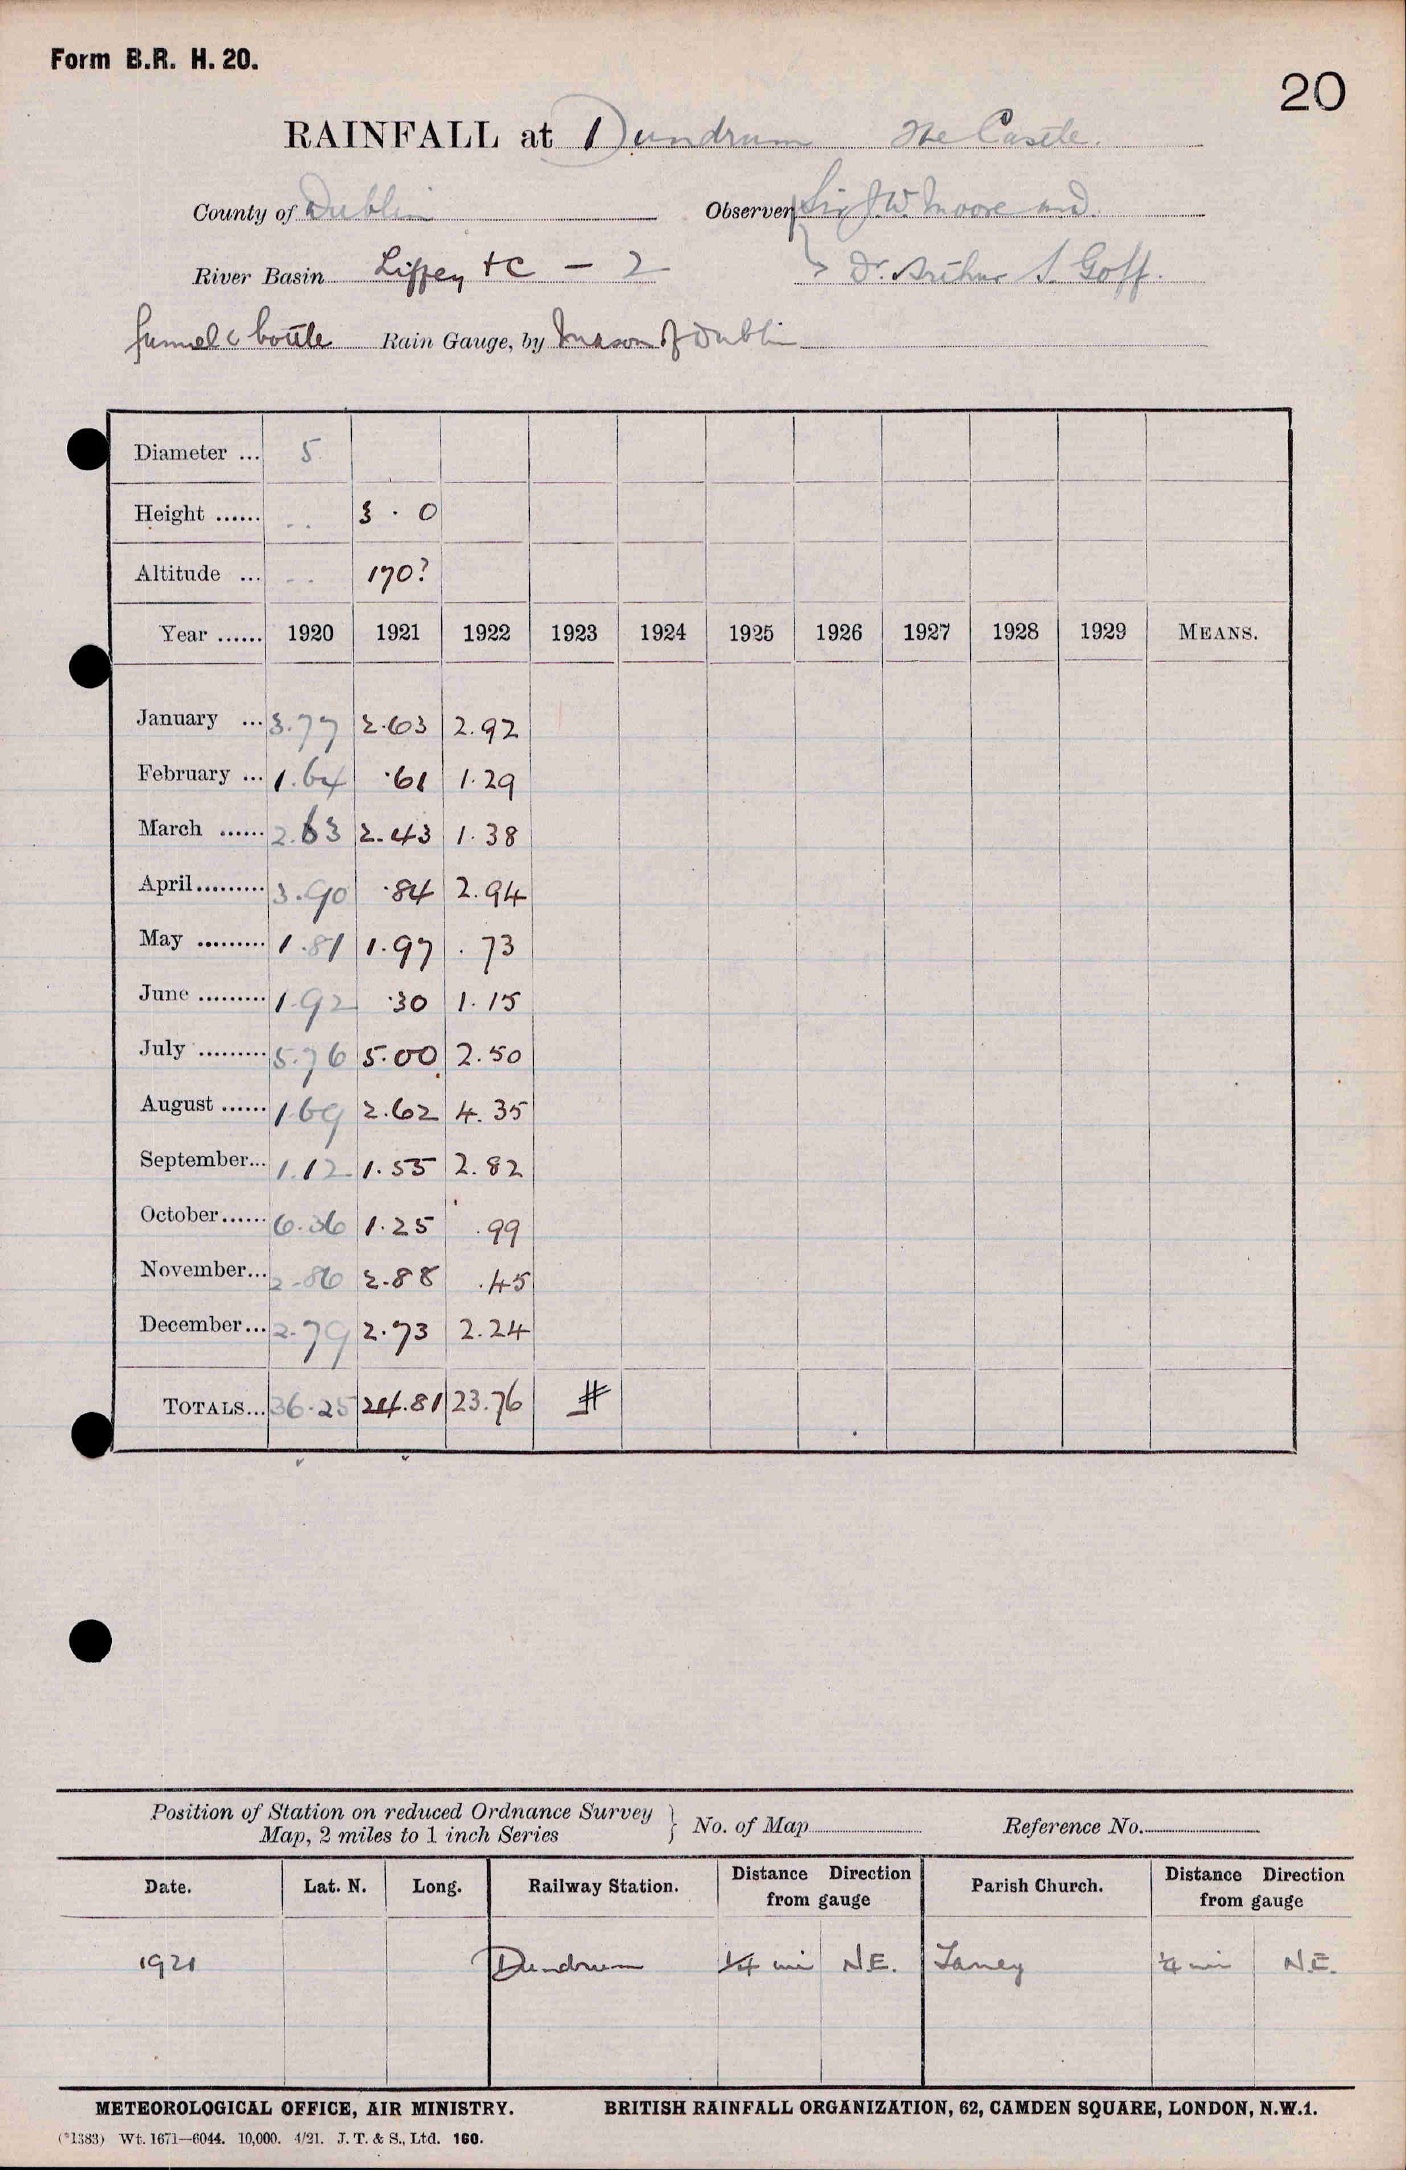 Form B.R. H. 20.
20
RAINFALL at Dundrum The Castle.
County of Dublin Observer Sir J.W. Moore and
River Basin Liffey + C — 2 Dr. Arthur S. Goff.
funnel & bottle Rain Gauge, by Mason of Dublin
Diameter ... 5
Height ...... .. 3 . 0
Altitude ... .. 170?
Year ...... 1920 1921 1922 1923 1924 1925 1926 1927 1928 1929 MEANS.
January ... 3.77 2.63 2.92
February ... 1.64 .61 1.29
March ...... 2.63 2.43 1.38
April......... 3.90 .84 2.94
May ......... 1.81 1.97 .73
June ......... 1.92 .30 1.15
July ......... 5.76 5.00 2.50
August ...... 1.69 2.62 4.35
September... 1.12 1.55 2.82
October...... 6.36 1.25 .99
November... 2.86 2.88 .45
December... 2.79 2.73 2.24
TOTALS... 36.25 24.81 23.76 #
Position of Station on reduced Ordnance Survey
Map, 2 miles to 1 inch Series } No. of Map Reference No.
Date. Lat. N. Long. Railway Station. Distance Direction from gauge Parish Church. Distance Direction from gauge
1921 Dundrum 1/4 mi N.E. Taney 1/4 mi N.E.
METEOROLOGICAL OFFICE, AIR MINISTRY. BRITISH RAINFALL ORGANIZATION, 62, CAMDEN SQUARE, LONDON, N.W.1.
(*1383) Wt. 1671—6044. 10,000. 4/21. J. T. & S., Ltd. 160.